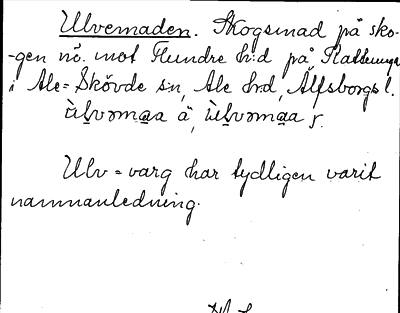 Ulvemaden. Skogsmad på sko-
-gen nö. mot Flundre h:d på
i Ale-Skövde s:n, Ale h:d, Älfsborgs l.

Ulv = varg har tydligen varit
namnanledning.